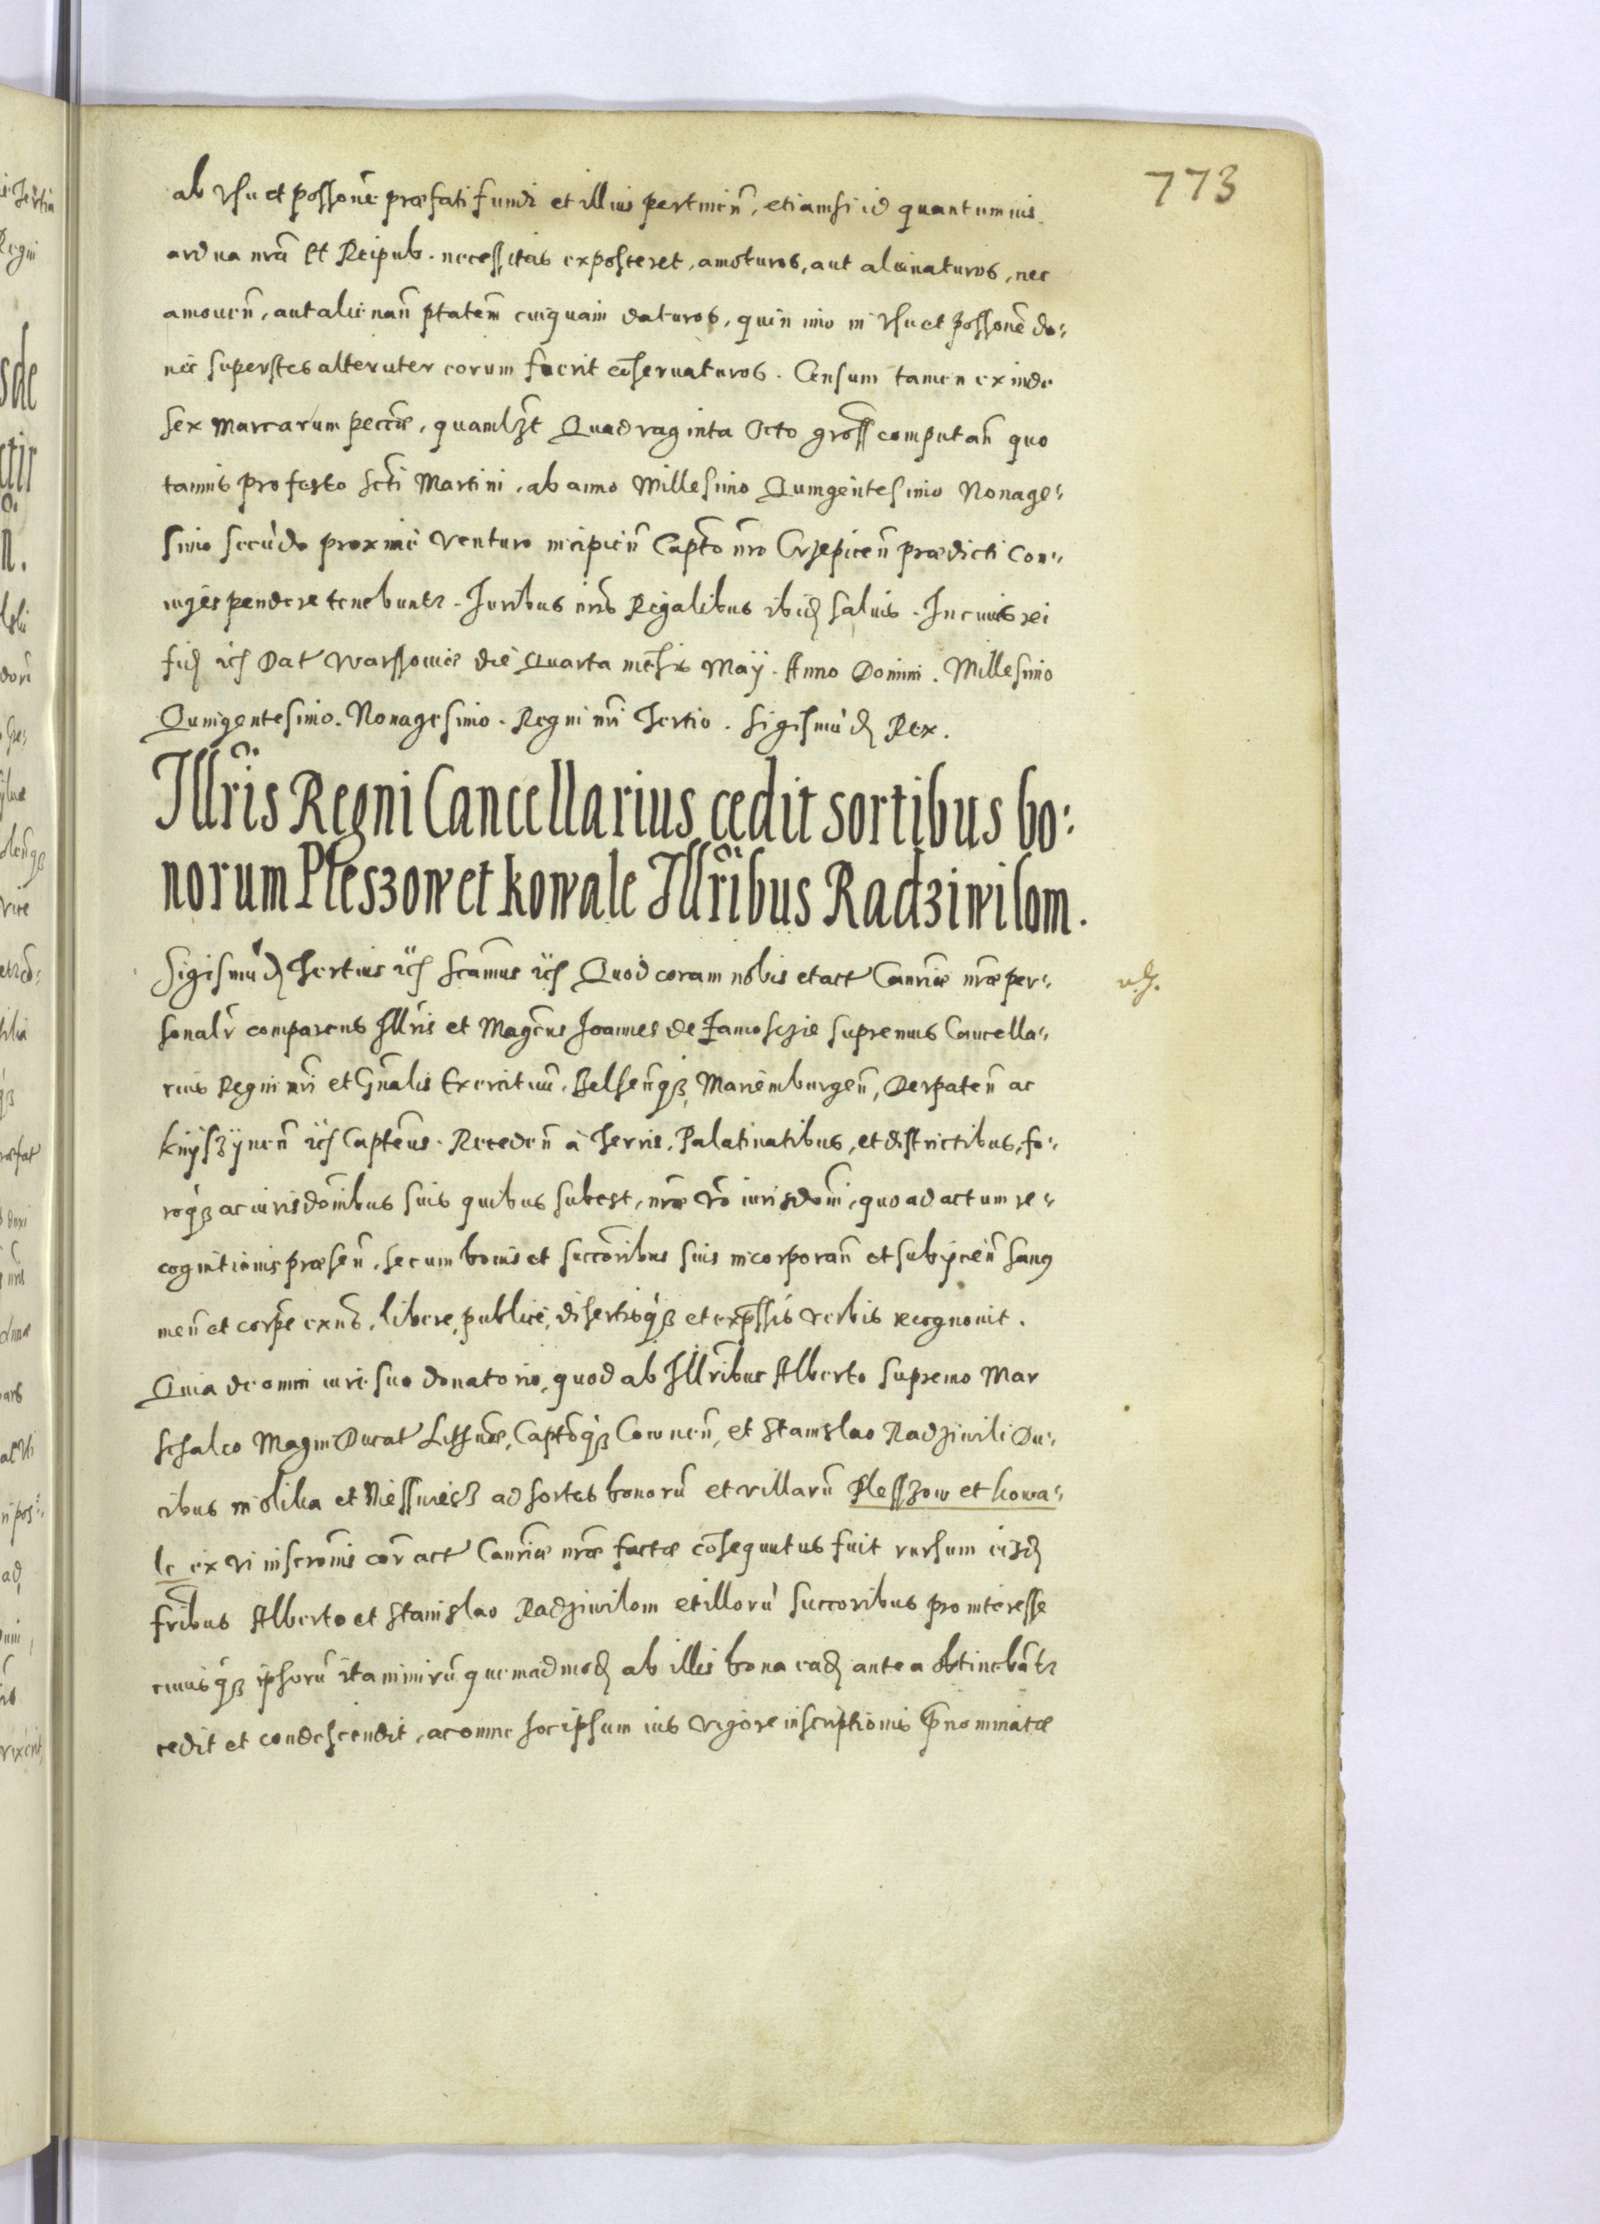 773
ab vsu et possone præfati fundi et illius pertinen̄, etiamsi id quantumuis
ardua nrā et Reipub. necessitas exposceret, amoturos, aut alienaturos, nec
amouen̄, aut alienan̄ ptatem̄ cuiquam daturos, quin imo in vsu et possonē do:
nec superstes alteruter eorum fuerit cōseruaturos. Censum tamen exinde
sex marcarum peccūie, quamlȝt Quadraginta Octo gross computan̄ quo
tannis pro festo Scti Martini, ab anno Millesimo Quingentesimo Nonage:
simo secūdo proxime venturo incipien̄ Capto nro Crzepicen̄ prædicti Con:
iuges pendere tenebuntr. Iuribus nris Regalibus ibid saluis. In cuius rei
fid etc Dat Warssouiæ die Quarta mēsis Maÿ. Anno Domini. Millesimo
Quingentesimo. Nonagesimo. Regni nri Tertio. Sigismūd Rex.
Illris Regni Cancellarius cedit sortibus bo:
norum Pleszow et Kowale Illribus Radziwilom.
Sigismūd Tertius etc Scamus etc Quod coram nobis et act Canriæ nræ per:
sonalr comparens Illris et Magcus Joannes de Zamosczie supremus Cancella:
rius Regni nri et Gnalis Exercituū, Belsen̄qȝ, Mariemburgen̄, Derpaten̄ ac
Knÿszÿnen̄ etc Captenus. Receden̄ à Terris, Palatinatibus, et districtibus, fo:
roqȝ ac iurisdonibus suis quibus subest, nræ vo iurisdoni, quo ad actum re:
cognitionis præsen̄, se cum bonis et succoribus suis incorporan̄ et subÿcien̄ sanus
men̄ et corpe exns, libere, publice, disertisqȝ et expssis verbis recognouit.
Quia de omni iure suo donatorio, quod ab Illribus Alberto supremo Mar
schalco Magni Ducat Lithuæ, Captoqȝ Cownen̄, et Stanislao Radziwili Du:
cibus in Olika et Niesswiesz ad sortes bonorū et villarū Plesszow et Kowa:
le ex vi inscronis cor act Canriæ nræ factæ cōsequutus fuit rursum eisd
fribus Alberto et Stanislao Radziwilom et illorū succoribus pro interesse
cuiusqȝ ipsorū ita nimirū quemadmod ab illis bona ead antea obtinebātr
cedit et condescendit, ac omne hoc ipsum ius vigore inscriptionis p̄nominatæ